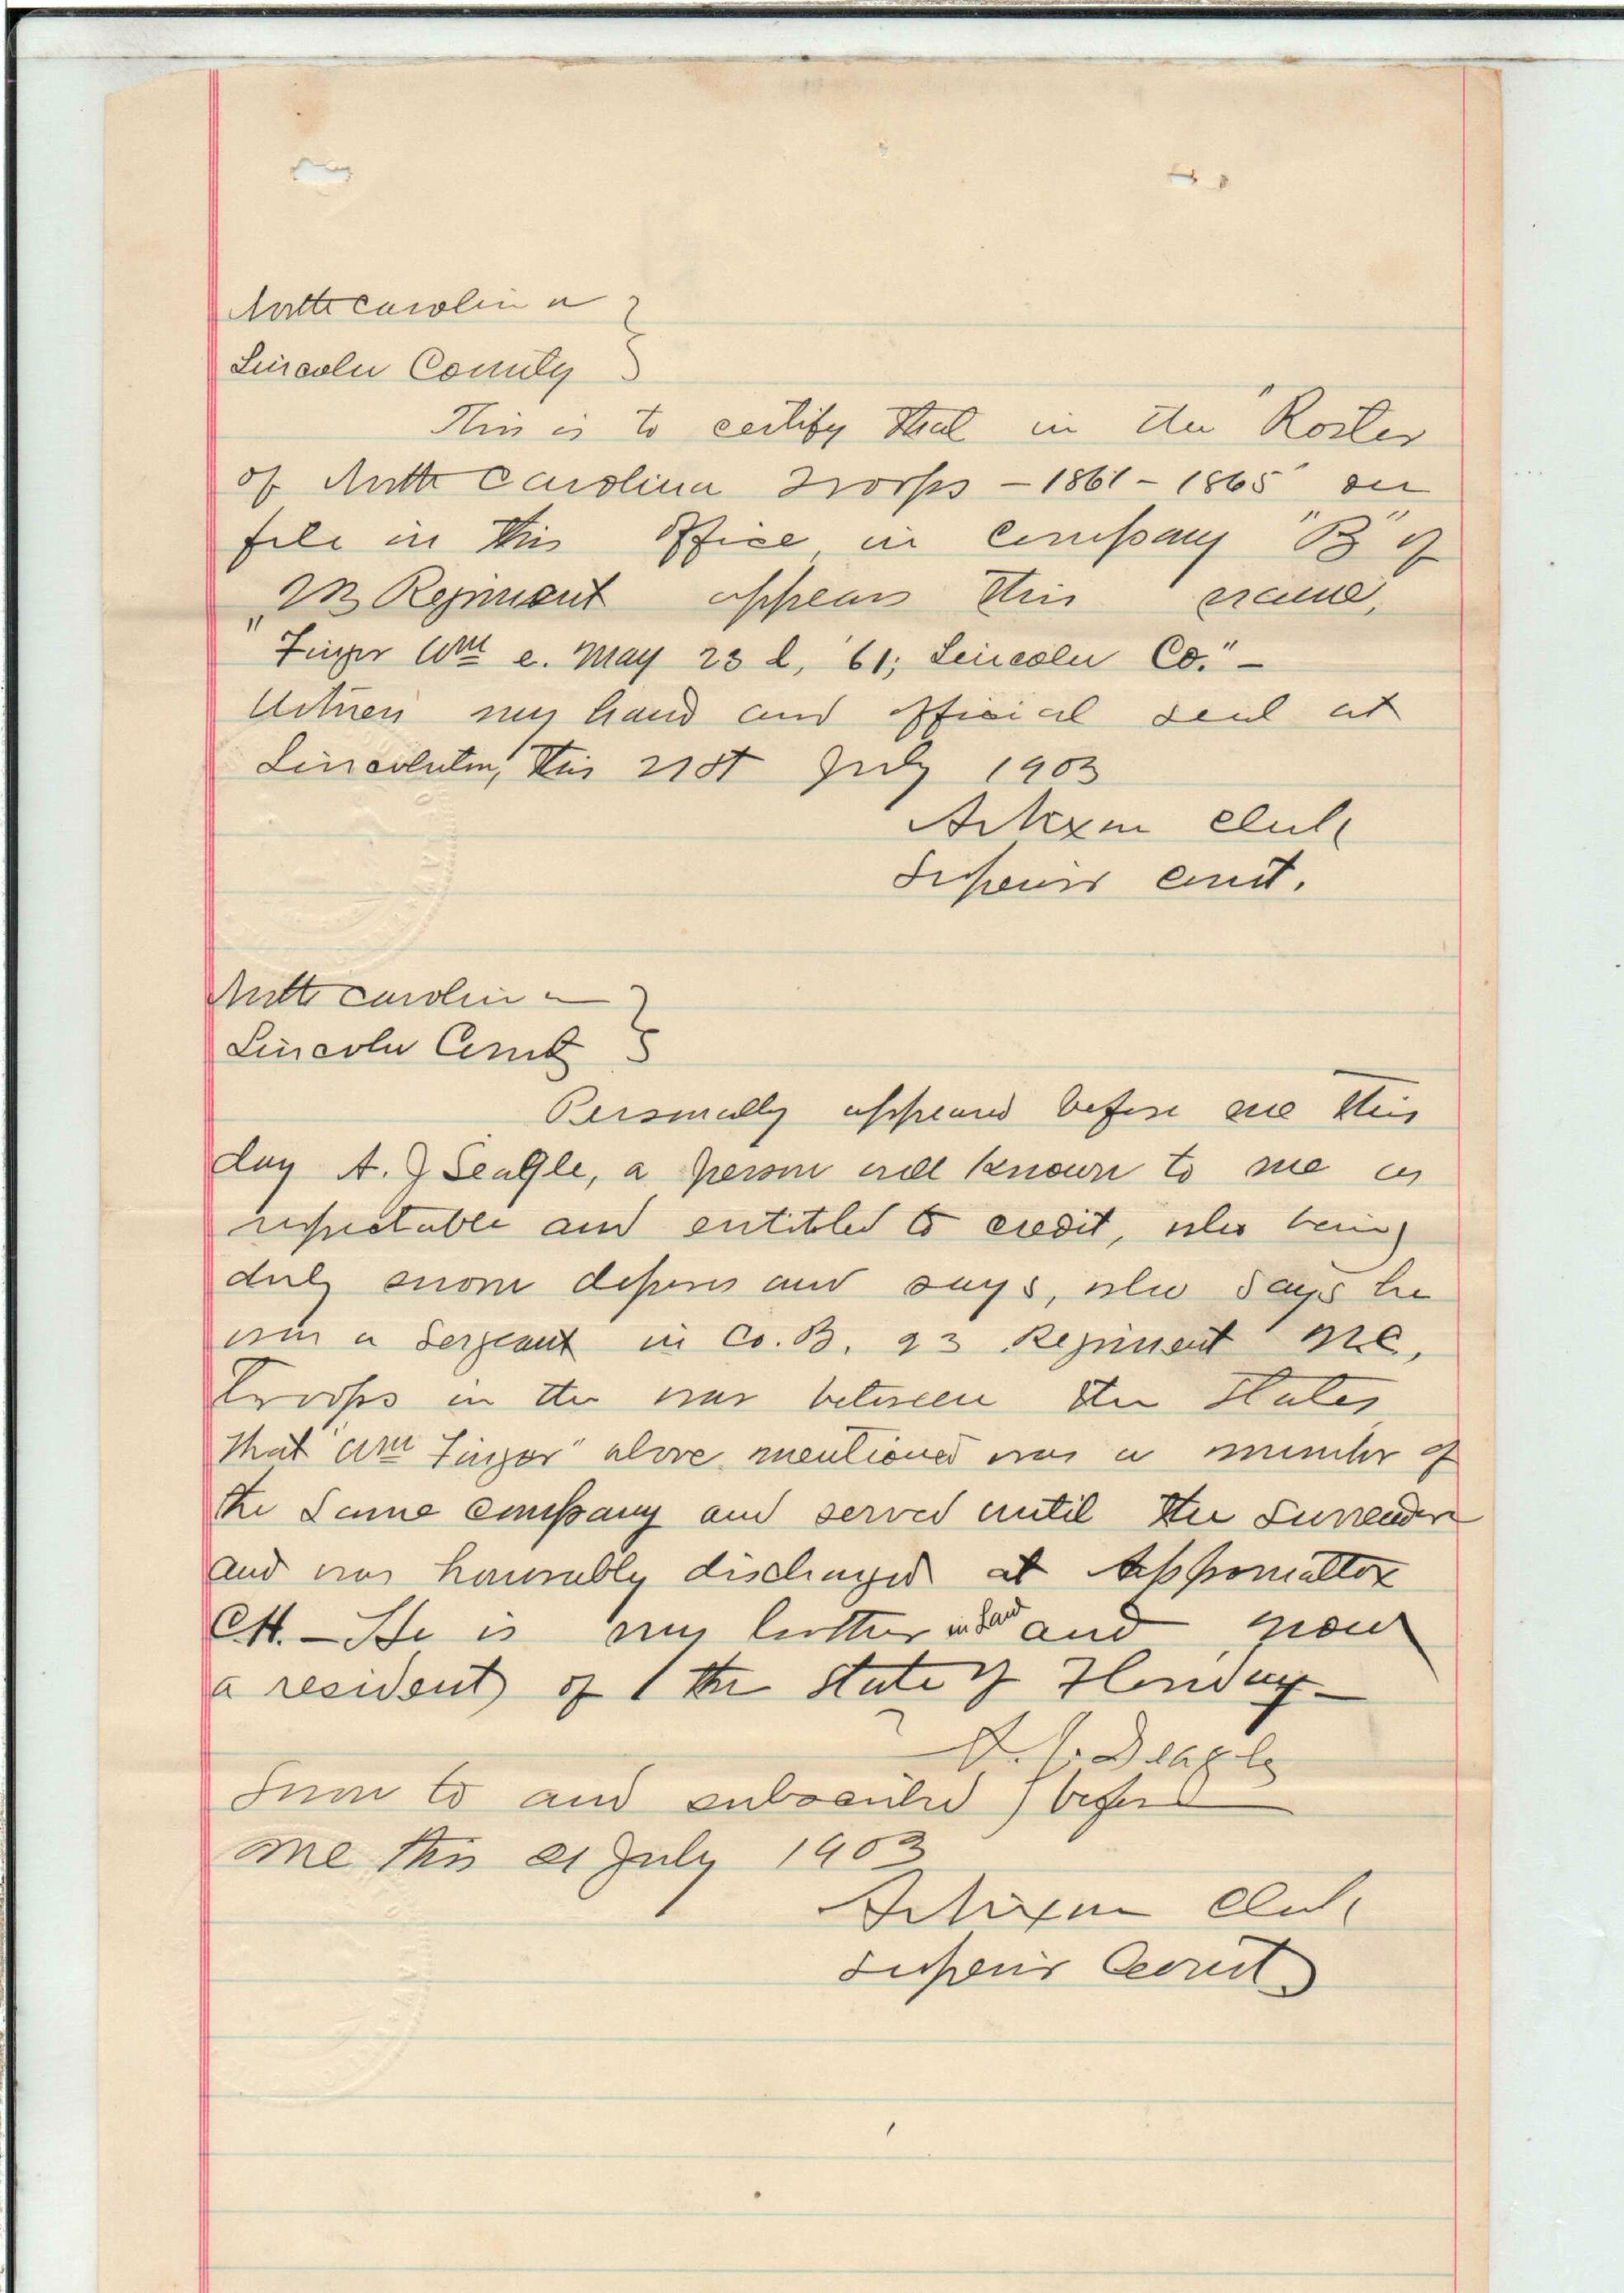 North Carolina }
Lincoln County }
This is to certify that in the "Roster
of North Carolina Troops - 1861 - 1865" on
file in this office, in Company "B" of
23 Regiment appears this name,
"Finger Wm e. May 23 d, '61; Lincoln Co." -
Witness my hand and official seal at
Lincolnton, this 21st July 1903
A Nixon Clerk
Superior Court.
North Carolina }
Lincoln County }
Personally appeared before me this
day A. J Seagle, a person well known to me as
respectable and entitled to credit, who being
duly sworn deposes and says, who says he
was a Sergeant in Co. B. 23 Regiment N.C,
Troops in the war between the States,
that "Wm Finger" above mentioned was a member of
the same company and served until the surrender
and was honorably discharged at Appomattox
CH. - He is my brother in Law and now
a resident of the state of Florida -
A. J. Seagle
Sworn to and subscribed before
me this 21 July 1903
A Nixon Clerk
Superior Court